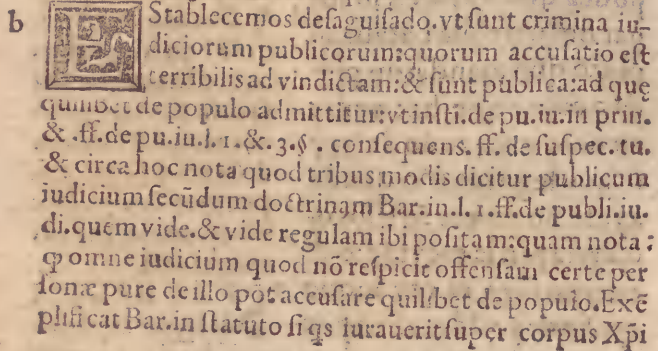 b EStablecemos desaguisado. vt sunt crimina iu-
diciorum publicorum: quorum accusatio est
terribilis ad vindictam: & sunt publica: ad quę
quilibet de populo admittitur: vt insti. de pu. iu. in prin.
& .ff. de pu. iu. l. 1. &. 3. § . consequens. ff. de suspec. tu.
& circa hoc nota quod tribus modis dicitur publicum
iudicium secūdum doctrinam Bar. in. l. 1. ff. de publi. iu.
di. quem vide. & vide regulam ibi positam: quam nota:
ꝙ omne iudicium quod nō respicit offensam certe per
sonæ pure de illo pōt accusare quilibet de populo. Exē
plificat Bar. in statuto si qs iurauerit super corpus Xpi